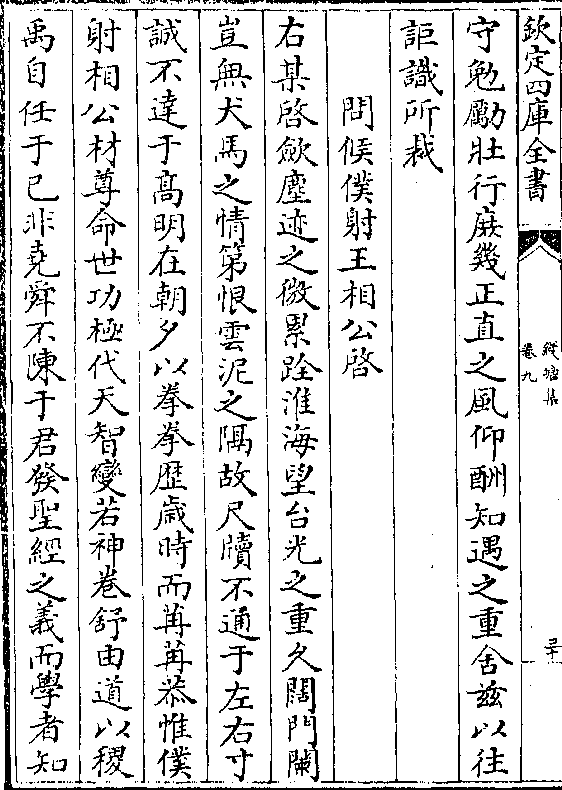 欽定四庫全書
縉雲集
卷九
三十
守勉勵壯行庶幾正直之風仰酬知遇之重舍兹以往
詎識所裁
問候僕射王相公啓
右某啓歛塵迹之微累跧淮海望台光之重久闊門闌
豈無犬馬之情第恨雲泥之隅故尺牘不通于左右寸
誠不達于髙明在朝夕以拳拳歴歳時而苒苒恭惟僕
射相公材尊命世功極代天智變若神卷舒由道以稷
禹自任于己非堯舜不陳于君發聖經之義而學者知